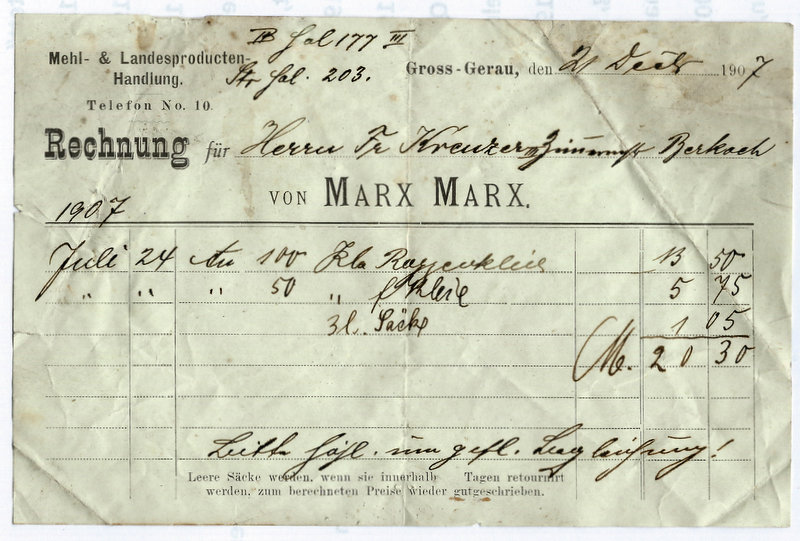 IB fol 177 III
Mehl- & Landesproducten-
Handlung.
Str fol. 203.
Gross-Gerau, den 21 Dezb 1907
Telefon No. 10.
Rechnung für Herrn Fr Kreuzer III Zimmermst Berkach
VON MARX MARX.
1907
Juli 24 An 100 Klo Roggenkleie 13 50
" " " 50 " f Kleie 5 75
3 l. Säcke 1 05
M. 20 30
Bitte höfl. um gefl. Begleichung!
Leere Säcke werden, wenn sie innerhalb Tagen retourniert
werden, zum berechneten Preise wieder gutgeschrieben.